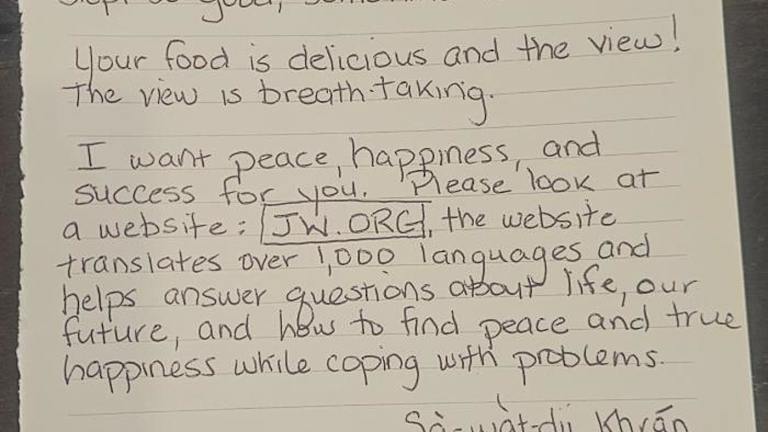 Your food is delicious and the view!
The view is breath-taking.
I want peace, happiness, and
success for you. Please look at
a website: JW.ORG, the website
translates over 1,000 languages and
helps answer questions about life, our
future, and how to find peace and true
happiness while coping with problems.
Sà-wàt-dii Khrán